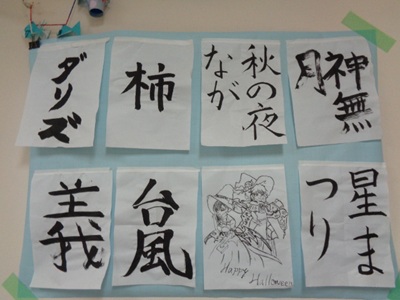 ダリズ
柿
秋の夜
なが
神無
月
義
台風
Happy
Halloween
星ま
つり